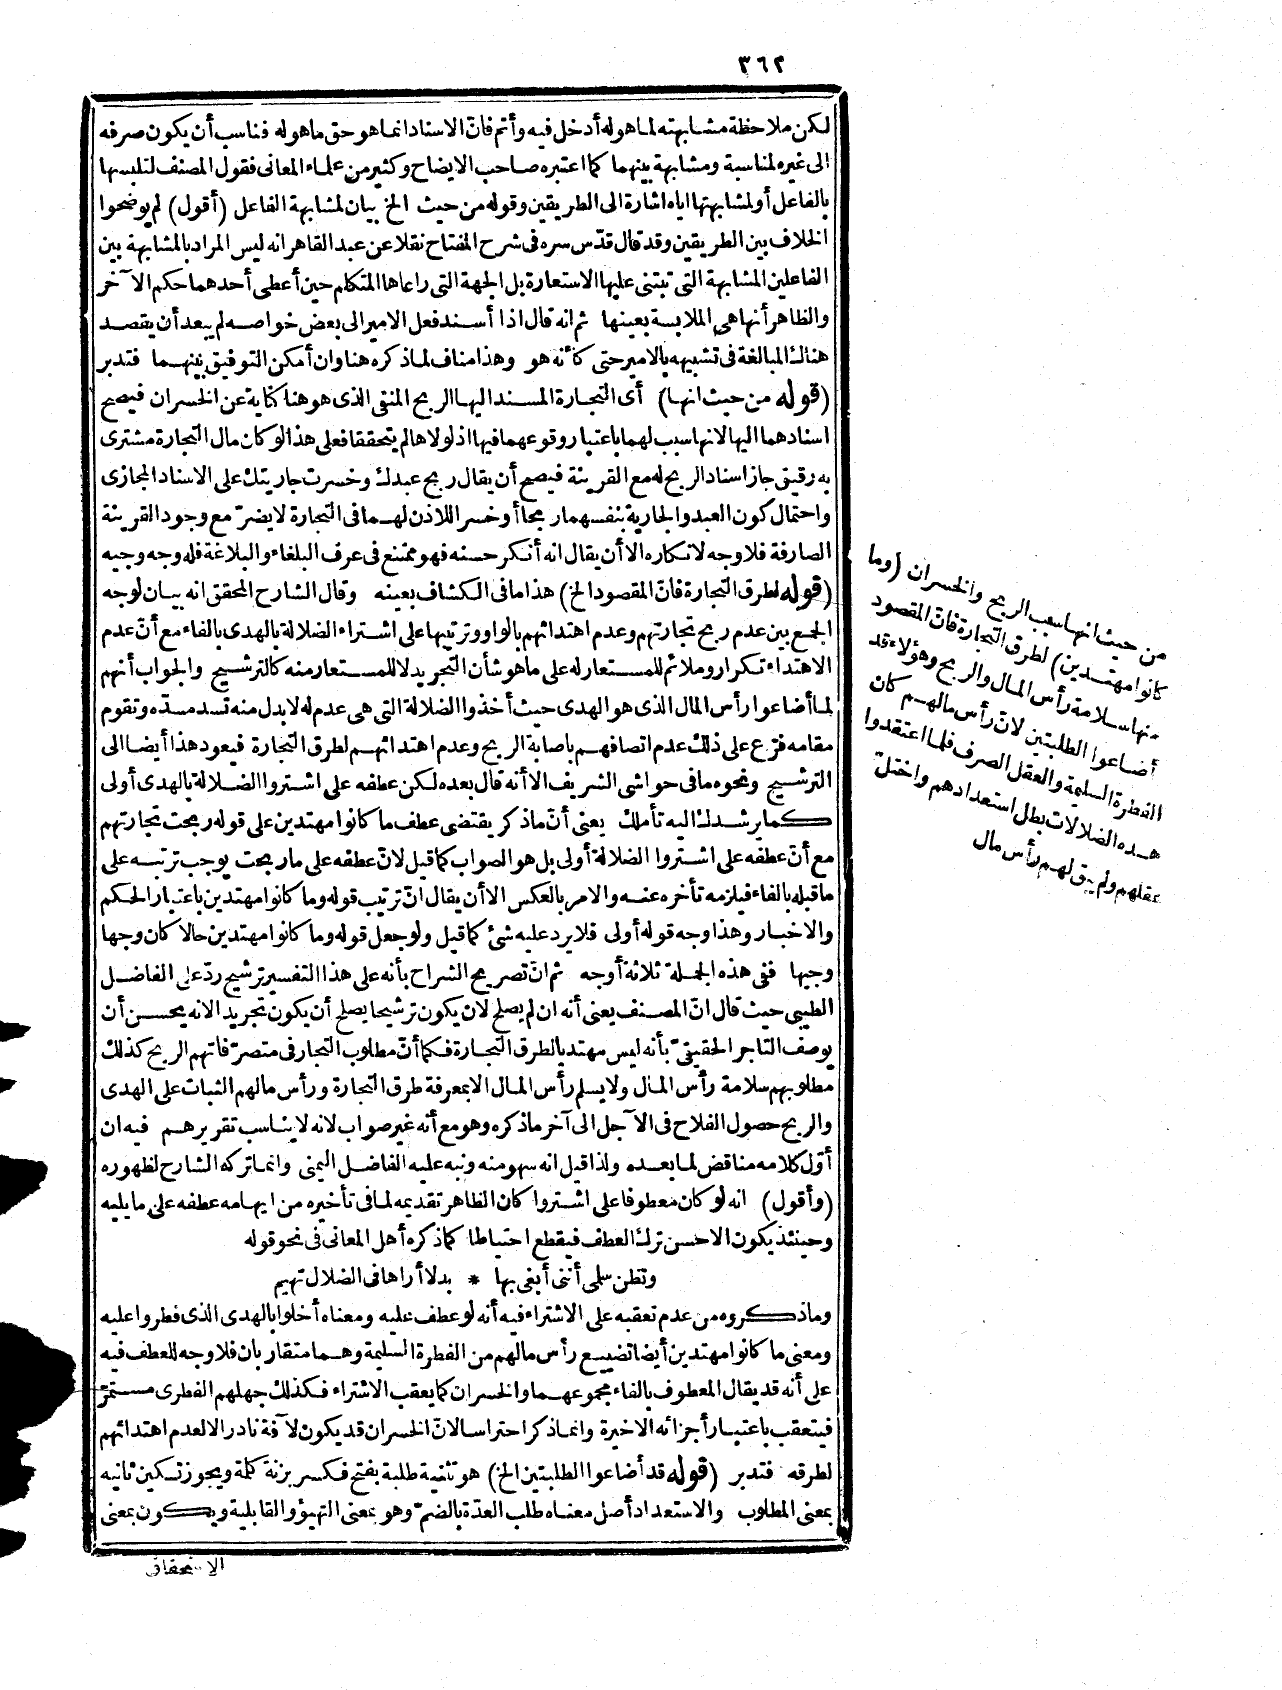 ٣٦٢
لكن ملاحظة مشابهته لما هو له أدخل فيه وأتم فانّ الاسناد انما هو حق ما هو له فناسب أن يكون صرفه
الى غيره لمناسبة ومشابهة بينهما كما اعتبره صاحب الايضاح وكثير من علماء المعانى فقول المصنف لتلبسها
بالفاعل أو لمشابهتها اياه اشارة الى الطريقين وقوله من حيث الخ بيان لمشابهة الفاعل (أقول) لم يوضحوا
الخلاف بين الطريقين وقد قال قدّس سره فى شرح المفتاح نقلا عن عبد القاهر انه ليس المراد بالمشابهة بين
الفاعلين المشابهة التى تبتنى عليها الاستعارة بل الجهة التى راعاها المتكلم حين أعطى أحدهما حكم الآخر
والظاهر أنها هى الملابسة بعينها ثم انه قال اذا أسند فعل الامير الى بعض خواصه لم يبعد أن يقصد
هناك المبالغة فى تشبيهه بالامير حتى كأنه هو وهذا مناف لما ذكره هنا وان أمكن التوفيق بينهما فتدبر
(قوله من حيث انها) أى التجارة المسند اليها الربح المنفى الذى هو هنا كناية عن الخسران فيصح
اسنادهما اليها لانها سبب لهما باعتبار وقوعهما فيها اذ لولاها لم يتحققا فعلى هذا لو كان مال التجارة مشترى
به رقيق جاز اسناد الربح له مع القرينة فيصح أن يقال ربح عبدك وخسرت جاريتك على الاسناد المجازى
واحتمال كون العبد والجارية بنفسهما ربحا أو خسرا للاذن لهما فى التجارة لا يضرّ مع وجود القرينة
الصارفة فلا وجه لانكاره الا أن يقال انه أنكر حسنه فهو ممتنع فى عرف البلغاء والبلاغة فله وجه وجيه
(قوله لطرق التجارة فانّ المقصود الخ) هذا ما فى الكشاف بعينه وقال الشارح المحقق انه بيان لوجه
الجمع بين عدم ربح تجارتهم وعدم اهتدائهم بالواو وترتيبها على اشتراء الضلالة بالهدى بالفاء مع أنّ عدم
الاهتداء تكرار وملائم للمستعار له على ما هو شأن التجريد لا للمستعار منه كالترشيح والجواب أنهم
لما أضاعوا رأس المال الذى هو الهدى حيث أخذوا الضلالة التى هى عدم له لا بدل منه تسد مسدّه وتقوم
مقامه فرّع على ذلك عدم اتصافهم باصابة الربح وعدم اهتدائهم لطرق التجارة فيعود هذا أيضا الى
الترشيح ونحوه ما فى حواشى الشريف الا أنه قال بعده لكن عطفه على اشتروا الضلالة بالهدى أولى
كما يرشدك اليه تأملك يعنى أنّ ما ذكر يقتضى عطف ما كانوا مهتدين على قوله ربحت تجارتهم
مع أنّ عطفه على اشتروا الضلالة أولى بل هو الصواب كما قيل لانّ عطفه على ما ربحت يوجب ترتبه على
ما قبله بالفاء فيلزمه تأخره عنه والامر بالعكس الا أن يقال انّ ترتيب قوله وما كانوا مهتدين باعتبار الحكم
والاخبار وهذا وجه قوله أولى فلا يرد عليه شئ كما قيل ولو جعل قوله وما كانوا مهتدين حالا كان وجها
وجيها ففى هذه الجملة ثلاثة أوجه ثم انّ تصريح الشراح بأنه على هذا التفسير ترشيح ردّ على الفاضل
الطيبى حيث قال انّ المصنف يعنى أنه ان لم يصلح لان يكون ترشيحا يصلح أن يكون تجريدا لانه يحسن أن
يوصف التاجر الحقيقىّ بأنه ليس مهتد بالطرق التجارة فكما أنّ مطلوب التجار فى متصرّفاتهم الربح كذلك
مطلوبهم سلامة رأس المال ولا يسلم رأس المال الا بمعرفة طرق التجارة ورأس مالهم الثبات على الهدى
والربح حصول الفلاح فى الآجل الى آخر ما ذكره وهو مع أنه غير صواب لانه لا يناسب تقريرهم فيه ان
أوّل كلامه مناقض لما بعده ولذا قيل انه سهو منه ونبه عليه الفاضل اليمنى وانما تركه الشارح لظهوره
(وأقول) انه لو كان معطوفا على اشتروا كان الظاهر تقديمه لما فى تأخيره من ايهامه عطفه على ما يليه
وحينئذ يكون الاحسن ترك العطف فيقطع احتياطا كما ذكره أهل المعانى فى نحو قوله
وتظن سلمى أننى أبغى بها * بدلا أراها فى الضلال تهيم
وما ذكروه من عدم تعقبه على الاشتراء فيه أنه لو عطف عليه ومعناه أخلوا بالهدى الذى فطروا عليه
ومعنى ما كانوا مهتدين أيضا تضييع رأس مالهم من الفطرة السليمة وهما متقاربان فلا وجه للعطف فيه
على أنه قد يقال المعطوف بالفاء مجموعهما والخسران كما يعقب الاشتراء فكذلك جهلهم الفطرى مستمرّ
فيتعقب باعتبار أجزائه الاخيرة وانما ذكر احتراسا لانّ الخسران قد يكون لآفة نادرا لا لعدم اهتدائهم
لطرقه فتدبر (قوله قد أضاعوا الطلبتين الخ) هو تثنية طلبة بفتح فكسر بزنة كلمة ويجوز تسكين ثانيه
بمعنى المطلوب والاستعداد أصل معناه طلب العدّة بالضمّ وهو بمعنى التهيؤ والقابلية ويكون بمعنى
الاستحقاق
من حيث انها سبب الربح والخسران (وما
كانوا مهتدين) لطرق التجارة فانّ المقصود
منها سلامة رأس المال والربح وهؤلاء قد
أضاعوا الطلبتين لانّ رأس مالهم كان
الفطرة السليمة والعقل الصرف فلما اعتقدوا
هذه الضلالات بطل استعدادهم واختلّ
عقلهم ولم يبق لهم رأس مال